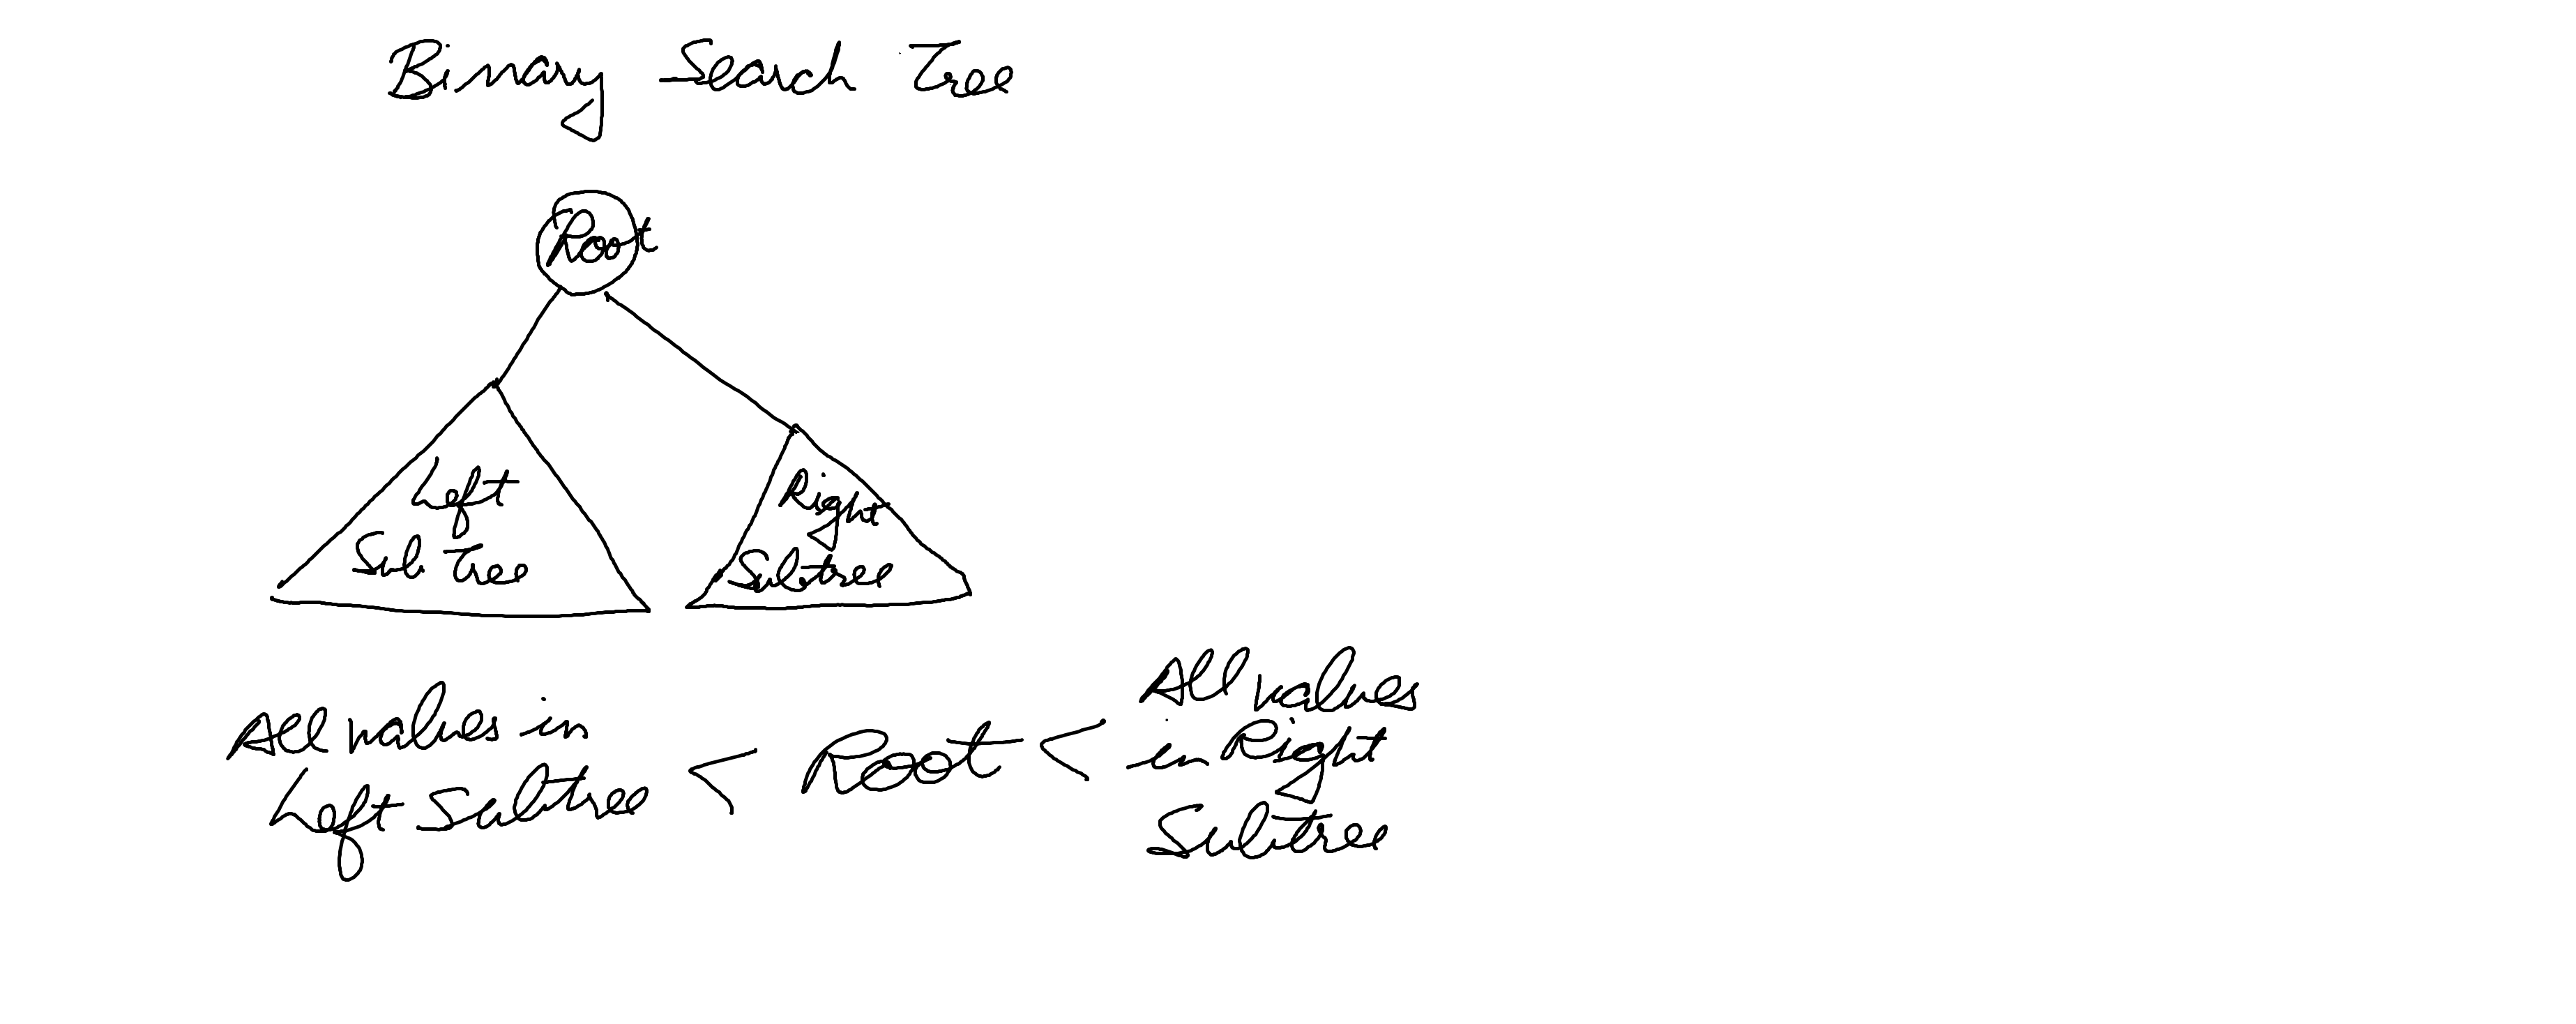 Binary Search Tree
Root
Left
Sub Tree
Right
Subtree
All values in
Left Subtree
< Root <
All values
in Right
Subtree